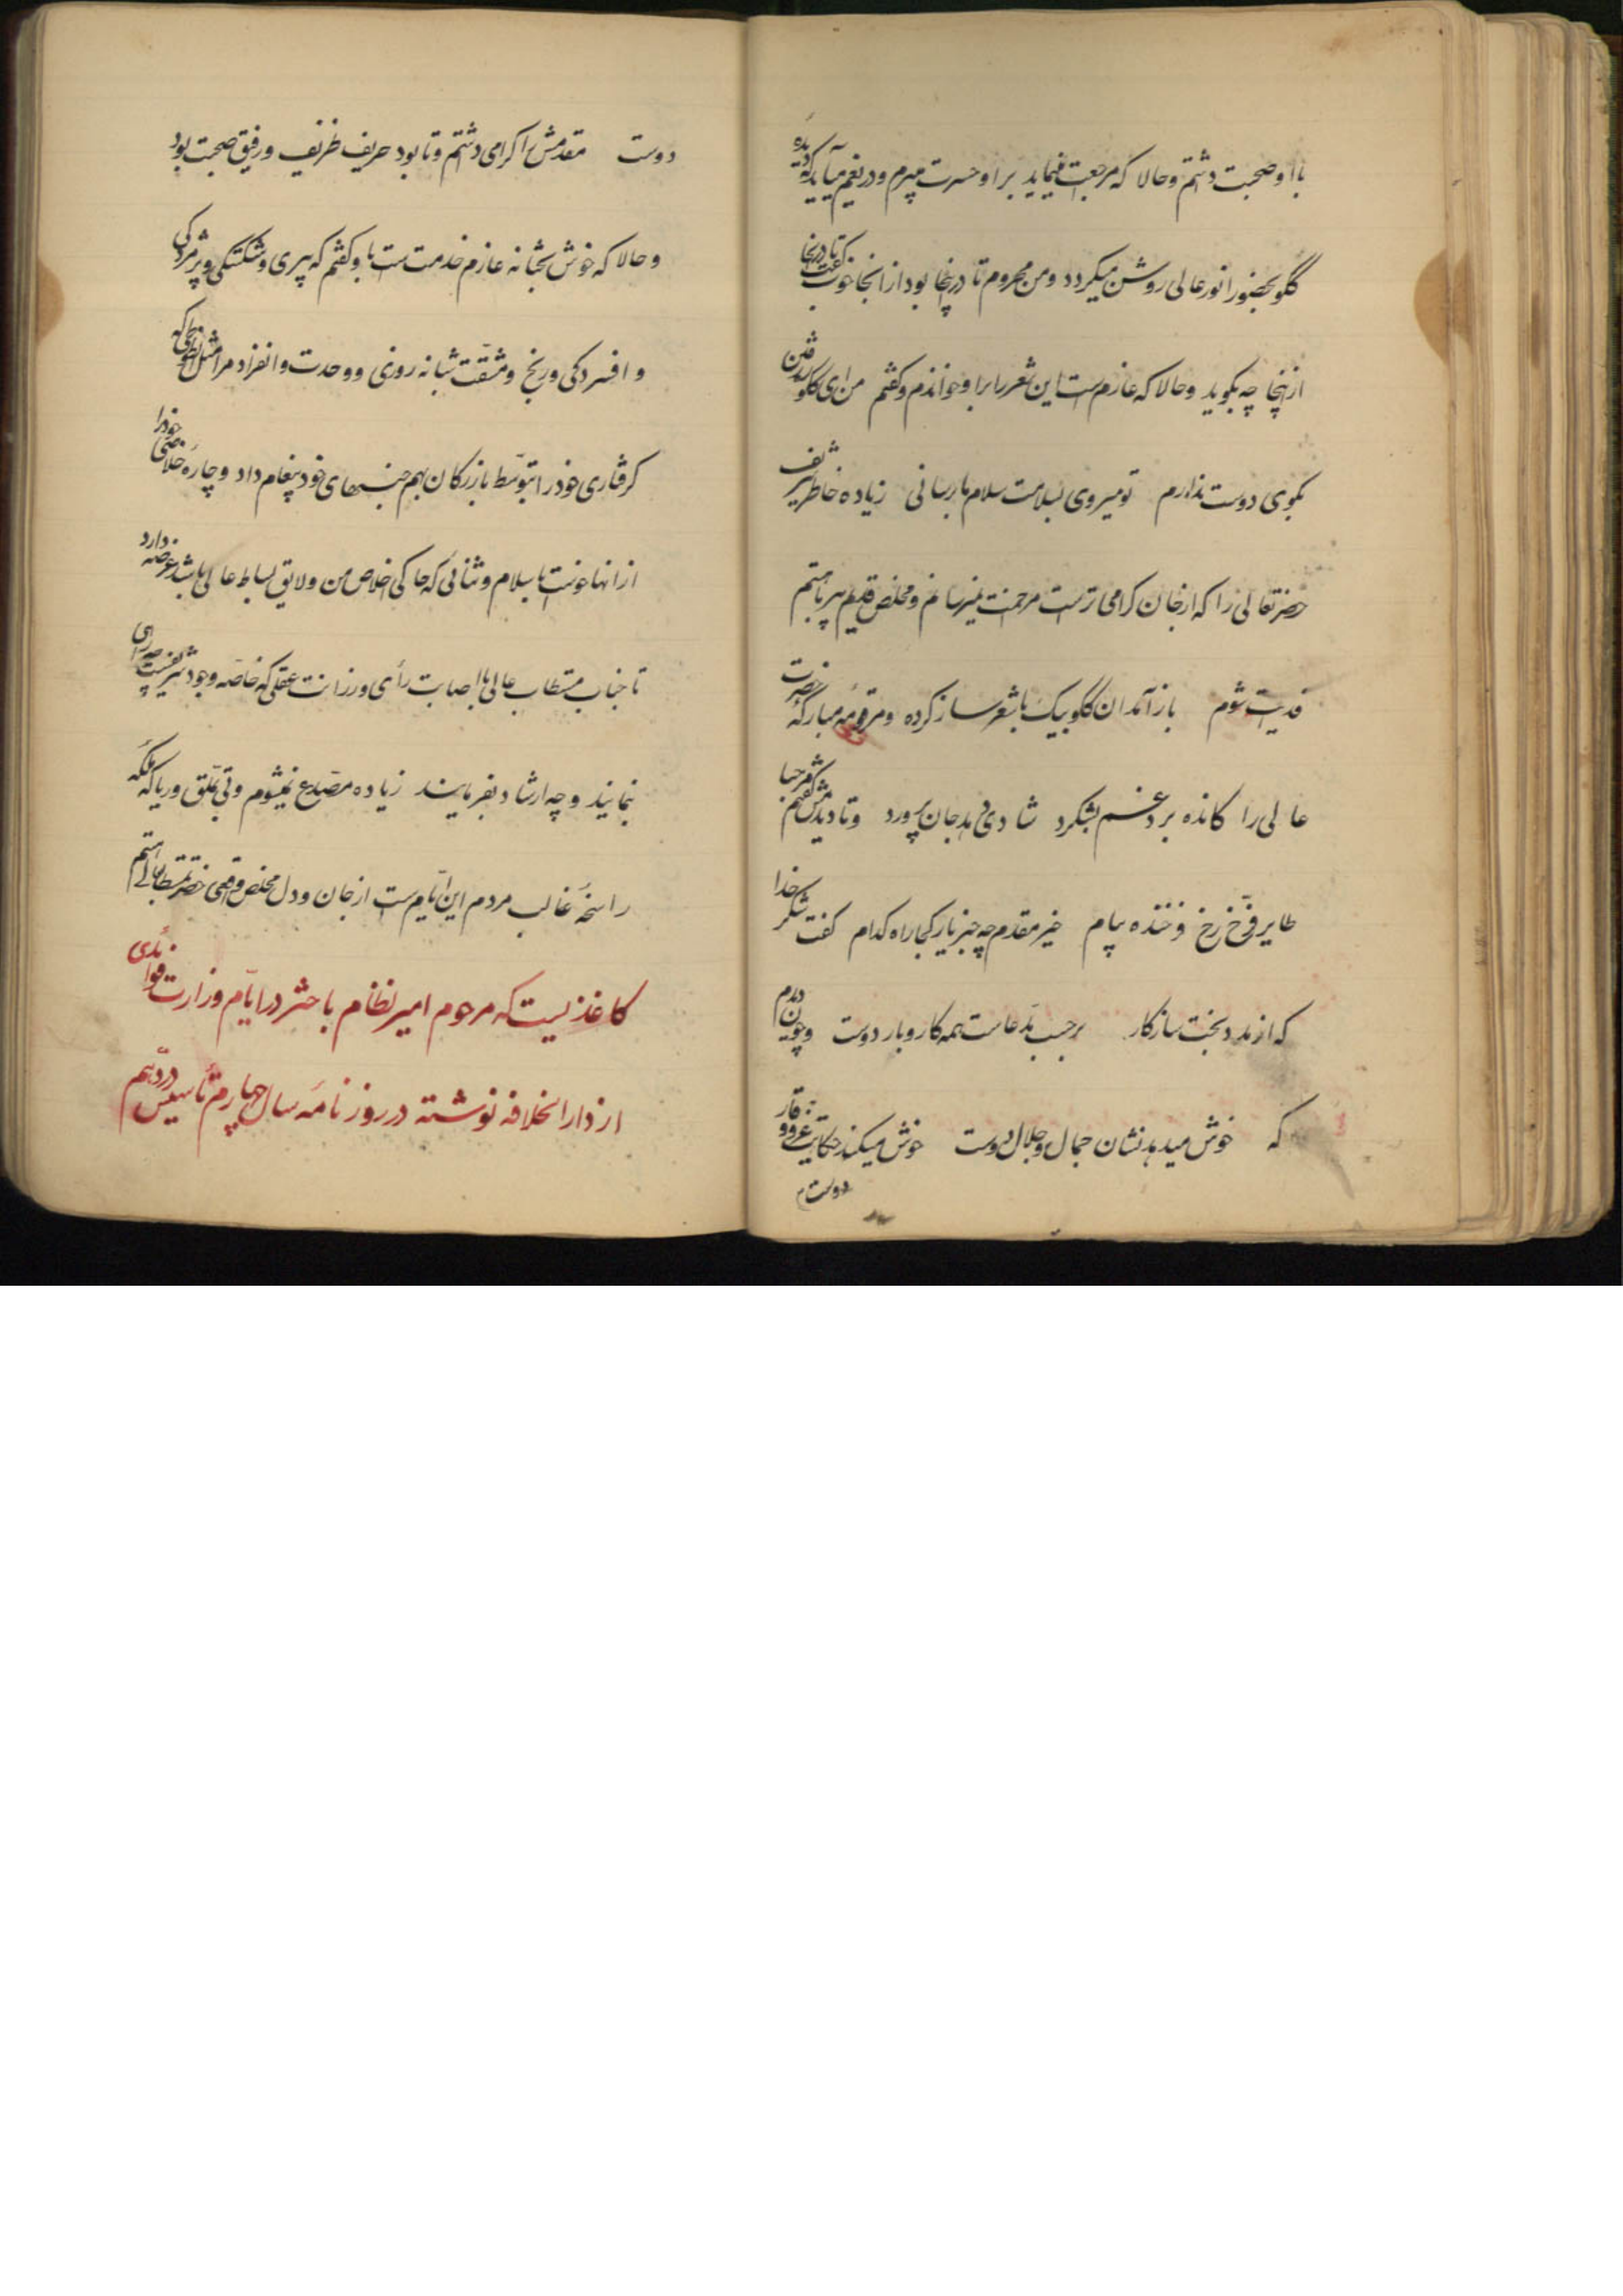 با او صحبت داشتم و حالا که مرجعت مینماید بر او حسرت میبرم و دریغم میآید که دیده
گلو بحضور انور عالی روشن میگردد و من محروم تا در اینجا بود از آنجا خوب گفت تا در آنجا
از اینجا چه بگوید و حالا که عازم است این شعر را برا و خواندم و گفتم من ای گلو
بکوی دوست ندارم تو میروی بسلامت سلام ما برسانی زیاده خاطر شریف
حضرتعالی را که از جان گرامی تر است مرحمت نمیرسانم و مخلص قدیم پیر با هستم
فدیت شوم باز آمدان گلو بیک با شعر ساز کرده و مرقومه مبارکهٔ حضرت
عالی را کانده برد غم بشکرد شادی دهد جان پرورد و تا دیدمش گفتم مرحبا
طایر فرّخ رخ فرخنده پیام خیر مقدم چه خبر یار کجا راه کدام گفت شکر خدا
که از مدد بخت سازکار برحسب مدعاست همه کار و بار دوست و چون دیدم
که خوش میدهد نشان جمال و جلال دوست خوش میکند حکایت عز و وقار
دوست
دوست مقدمش را گرامی داشتم و تا بود حریف ظریف و رفیق صحبت بود
و حالا که خوش بختانه عازم خدمت است با و گفتم که پیری و شکستگی و پژمردگی
و افسردگی و رنج و مشقت شبانه روزی و وحدت و انفراد مرا مثل طوطی که
گرفتاری خود را بتوسّط بازرگان بهم جنسهای خود پیغام داد و چارهٔ خلاصی خود را
از آنها خواست با سلام و ثنائی که حاکی اخلاص من و لایق بساط عالی باشد عرضه دارد
تا جناب مستطاب عالی با اصابت رأی و رزانت عقلی که خاصّه وجود شریفست چه رای
نمایند و چه ارشاد بفرمایند زیاده مصدع نمیشوم و بی تملق و ریا که ملکه
راسخهٔ غالب مردم این ایام است از جان و دل مخلص واقعی حضرت مستطاب عالی هستم
کاغذیست که مرحوم امیر نظام با حشر در ایّام وزارت فواید
از دار الخلافه نوشته در روزنامه سال چهارم تأسیس